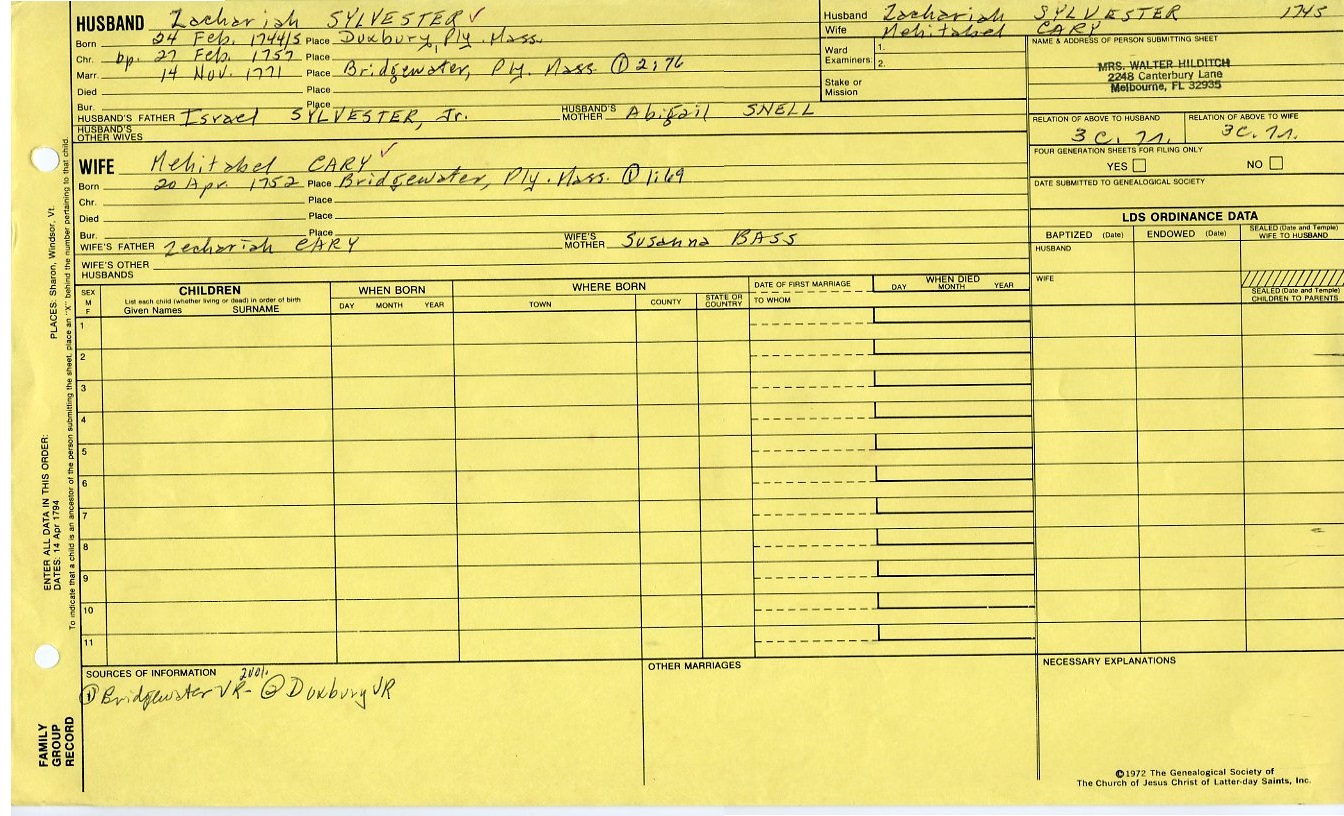 HUSBAND Zachariah SYLVESTER ✓
Born 24 Feb. 1744/5 Place Duxbury, Ply. Mass.
Chr. bp. 27 Feb. 1757 Place
Marr. 14 Nov. 1771 Place Bridgewater, Ply. Mass. ① 2:76
Died Place
Bur. Place
HUSBAND'S FATHER Israel SYLVESTER, Jr. HUSBAND'S MOTHER Abigail SNELL
HUSBAND'S OTHER WIVES
WIFE Mehitabel CARY ✓
Born 20 Apr. 1752 Place Bridgewater, Ply. Mass. ① 1:69
Chr. Place
Died Place
Bur. Place
WIFE'S FATHER Zechariah CARY WIFE'S MOTHER Susanna BASS
WIFE'S OTHER HUSBANDS
Husband Zachariah SYLVESTER 1745
Wife Mehitabel CARY
Ward Examiners: 1.
2.
Stake or Mission
NAME & ADDRESS OF PERSON SUBMITTING SHEET
MRS. WALTER HILDITCH
2248 Canterbury Lane
Melbourne, FL 32935
RELATION OF ABOVE TO HUSBAND RELATION OF ABOVE TO WIFE
3C. 7r. 3C. 7r.
FOUR GENERATION SHEETS FOR FILING ONLY
YES NO
DATE SUBMITTED TO GENEALOGICAL SOCIETY
LDS ORDINANCE DATA
BAPTIZED (Date) ENDOWED (Date) SEALED (Date and Temple) WIFE TO HUSBAND
HUSBAND
WIFE
SEALED (Date and Temple) CHILDREN TO PARENTS
SEX M F
CHILDREN
List each child (whether living or dead) in order of birth
Given Names SURNAME
WHEN BORN
DAY MONTH YEAR
WHERE BORN
TOWN COUNTY STATE OR COUNTRY
DATE OF FIRST MARRIAGE
TO WHOM
WHEN DIED
DAY MONTH YEAR
1
2
3
4
5
6
7
8
9
10
11
SOURCES OF INFORMATION
① Bridgewater VR- ② Duxbury VR
OTHER MARRIAGES
NECESSARY EXPLANATIONS
©1972 The Genealogical Society of
The Church of Jesus Christ of Latter-day Saints, Inc.
PLACES: Sharon, Windsor, Vt.
To indicate that a child is an ancestor of the person submitting the sheet, place an "X" behind the number pertaining to that child.
ENTER ALL DATA IN THIS ORDER:
DATES: 14 Apr 1794
FAMILY
GROUP
RECORD